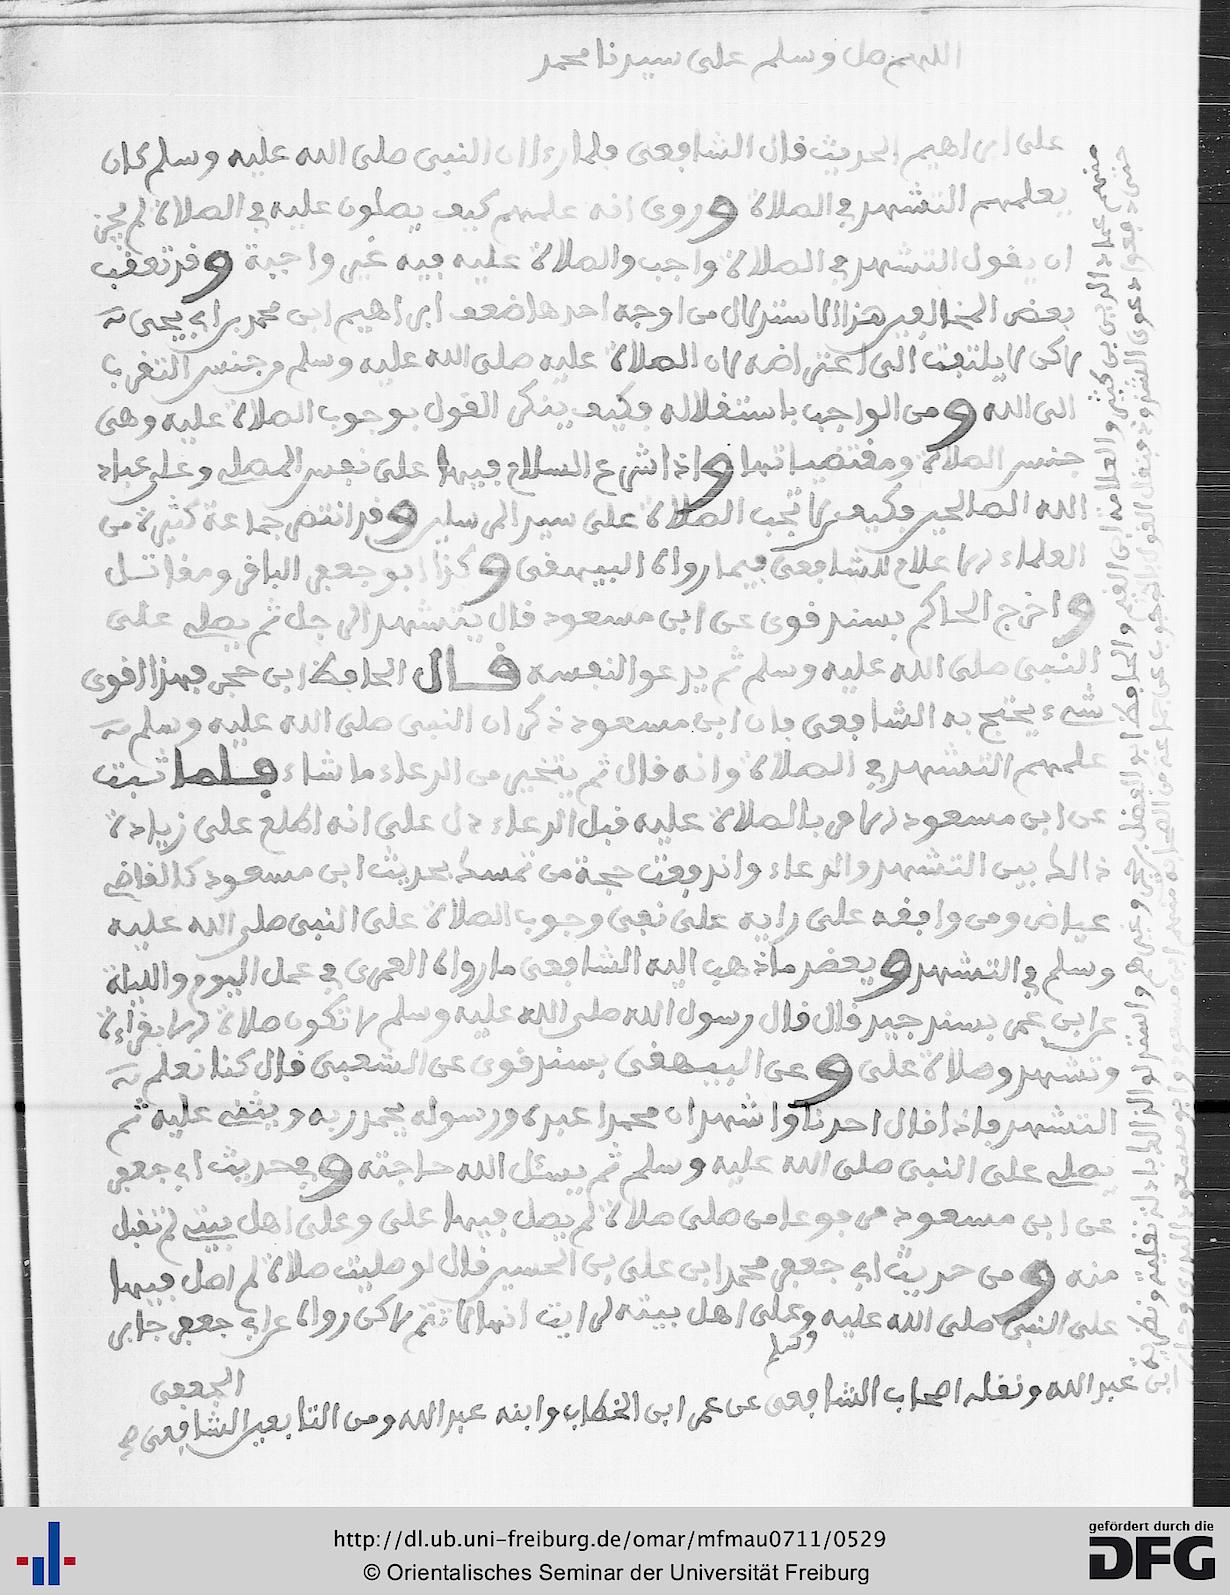 اللهم صل وسلم على سيدنا محمد
على ابراهيم الحديث قال الشافعى فلما رءا ان النبى صلى الله عليه وسلم كان
يعلمهم التشهد في الصلاة وروى انه علمهم كيف يصلون عليه في الصلاة لم يجز
ان يقول التشهد في الصلاة واجب والصلاة عليه فيه غير واجبة وقد تعقب
بعض المخالفين هذا الاستدلال من اوجه احدها ضعف ابراهيم ابن محمد بن ابي يحيى
لاكن لا يلتفت الى اعتراضه لان الصلاة عليه صلى الله عليه وسلم من جنس التقرب
الى الله ومن الواجب باستقلاله فكيف ينكر القول بوجوب الصلاة عليه وهى
جنس الصلاة ومقتضياتها واذا شرع السلام فيها على نفس المصلي وعلى عباد
الله الصالحين فكيف لا تجب الصلاة على سيد المرسلين وقد انتصر جماعة كثيرة من
العلماء الاعلام للشافعى فيما رواه البيهقى وكذا ابو جعفر الباقر ومقاتل
واخرج الحاكم بسند قوى عن ابن مسعود قال يتشهد الرجل ثم يصلي على
النبى صلى الله عليه وسلم ثم يدعو النفسه قال الحافظ ابن حجر فهذا اقوى
شيء يحتج به الشافعى فان ابن مسعود ذكر ان النبى صلى الله عليه وسلم
علمهم التشهد في الصلاة وانه قال ثم يتخير من الدعاء ما شاء فلما ثبت
عن ابن مسعود الامر بالصلاة عليه قبل الدعاء دل على انه اطلع على زيادة
ذالك بين التشهد والدعاء واندفعت حجة من تمسك بحديث ابن مسعود كالقاضي
عياض ومن وافقه على رايه على نفى وجوب الصلاة على النبى صلى الله عليه
وسلم في التشهد ويعضد ما ذهب اليه الشافعى ما رواه العمرى في عمل اليوم والليلة
عن ابن عمر بسند جيد قال قال رسول الله صلى الله عليه وسلم لا تكون صلاة الا بقراءة
وتشهد وصلاة على وعن البيهقى بسند قوى عن الشعبى قال كنا نعلم
التشهد فاذا قال احدنا واشهد ان محمدا عبده ورسوله يحمد ربه ويثني عليه ثم
يصلي على النبى صلى الله عليه وسلم ثم يسئل الله حاجته وفي حديث ابي جعفر
عن ابن مسعود مرفوعا من صلى صلاة لم يصل فيها على وعلى اهل بيتي لم تقبل
منه ومن حديث ابي جعفر محمد ابن على بن الحسين قال لو صليت صلاة لم اصل فيها
على النبى صلى الله عليه وسلم وعلى اهل بيته لرايت انها لا تتم لاكن رواه عن ابي جعفر جابر
الجعفى
ابن عبد الله ونقله اصحاب الشافعى عن عمر ابن الخطاب وابنه عبد الله ومن التابعين الشافعى
منهم عماد الدين بن كثير والعلامة ابن القيم والحافظ ابو الفضل بن حجر وغيره واستدلوا لذالك بادلة نقلية ونظرية
حتى دفعوا دعوى الشذوذ فنقل القول بالوجوب عن جماعة من الصحابة منهم ابن مسعود وابو مسعود البدرى وجابر
http://dl.ub.uni-freiburg.de/omar/mfmau0711/0529
© Orientalisches Seminar der Universität Freiburg
gefördert durch die
DFG